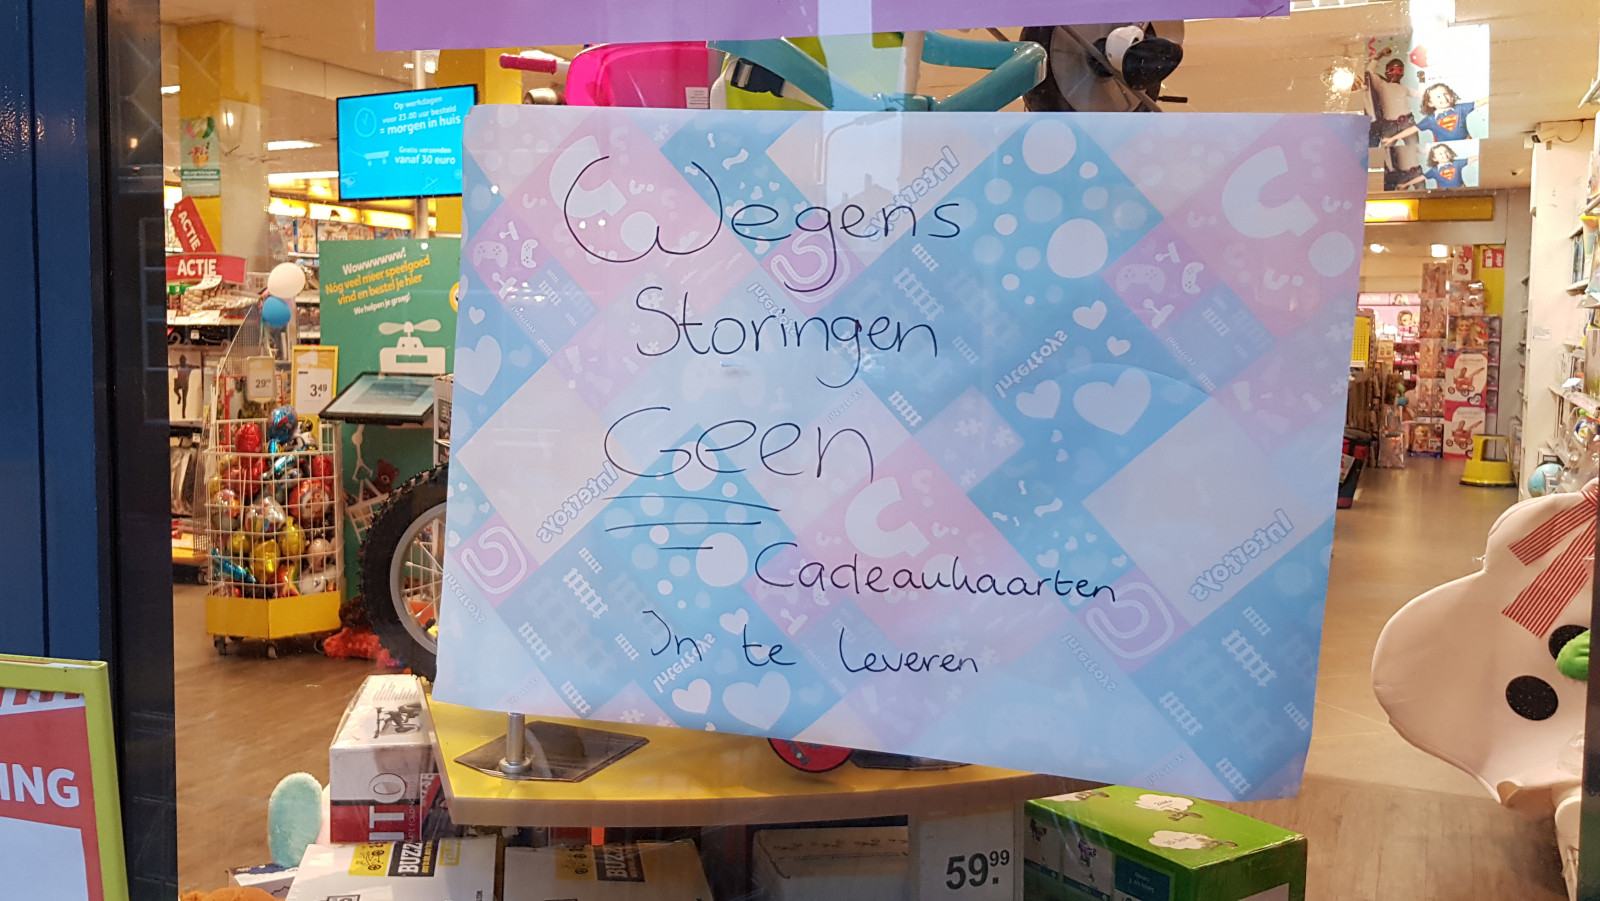 Op werkdagen
voor 23.00 uur besteld
= morgen in huis
Gratis verzenden
vanaf 30 euro
ACTIE
ACTIE
Wowwwwww!
Nóg veel meer speelgoed
vind en bestel je hier
We helpen je graag!
29
3.49
Wegens
Storingen
Geen
Cadeaukaarten
In te leveren
Intertoys
Intertoys
Intertoys
Intertoys
Intertoys
ING
NTO
BUZZ
BUZZ
59.99